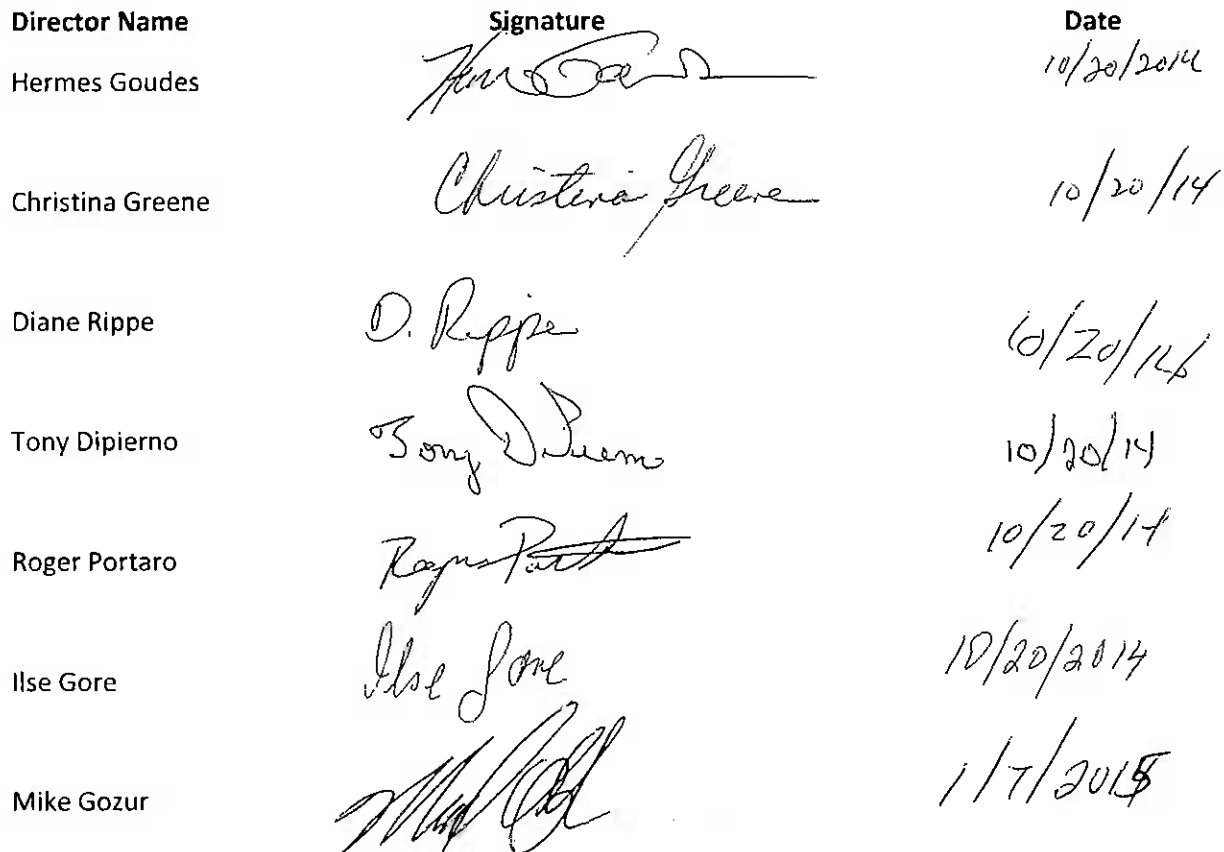 Director Name Signature Date
Hermes Goudes 10/20/2014
Christina Greene Christina Greene 10/20/14
Diane Rippe D. Rippe 10/20/14
Tony Dipierno Tony DiPierno 10/20/14
Roger Portaro Roger 10/20/14
Ilse Gore Ilse Gore 10/20/2014
Mike Gozur 1/7/2015